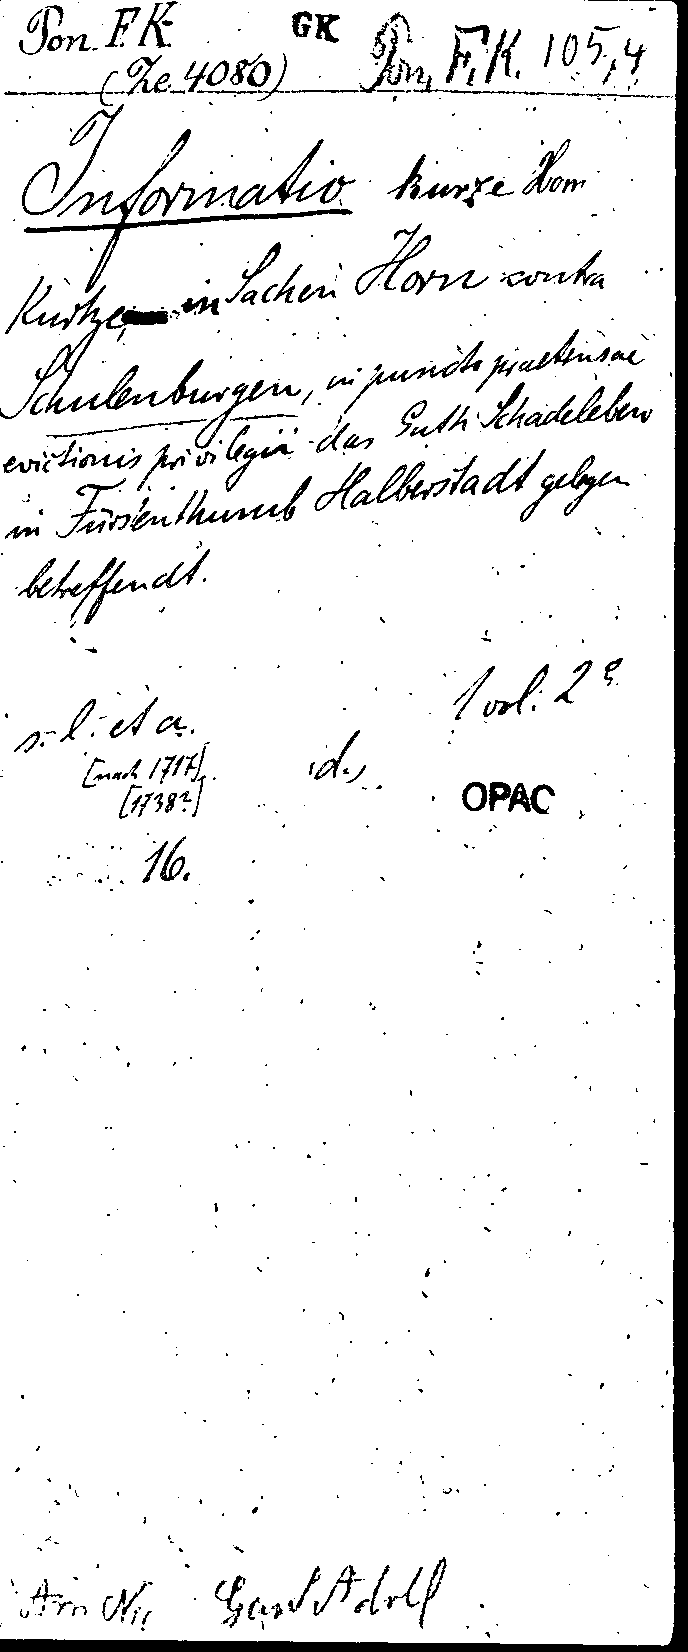 Pon. F.K. GK Pon. F.K. 105,4
(Ze 4080)
Informatio kurze Horn
Kurtze in Sachen Horn contra
Schulenburgen, in puncto praetensae
evictionis privilegii das Guth Schadeleben
in Fürstenthumb Halberstadt gelegen
betreffendt.
s. l. et a. 1 vol. 2°
[nach 1717] d.
[1738?] OPAC
16.